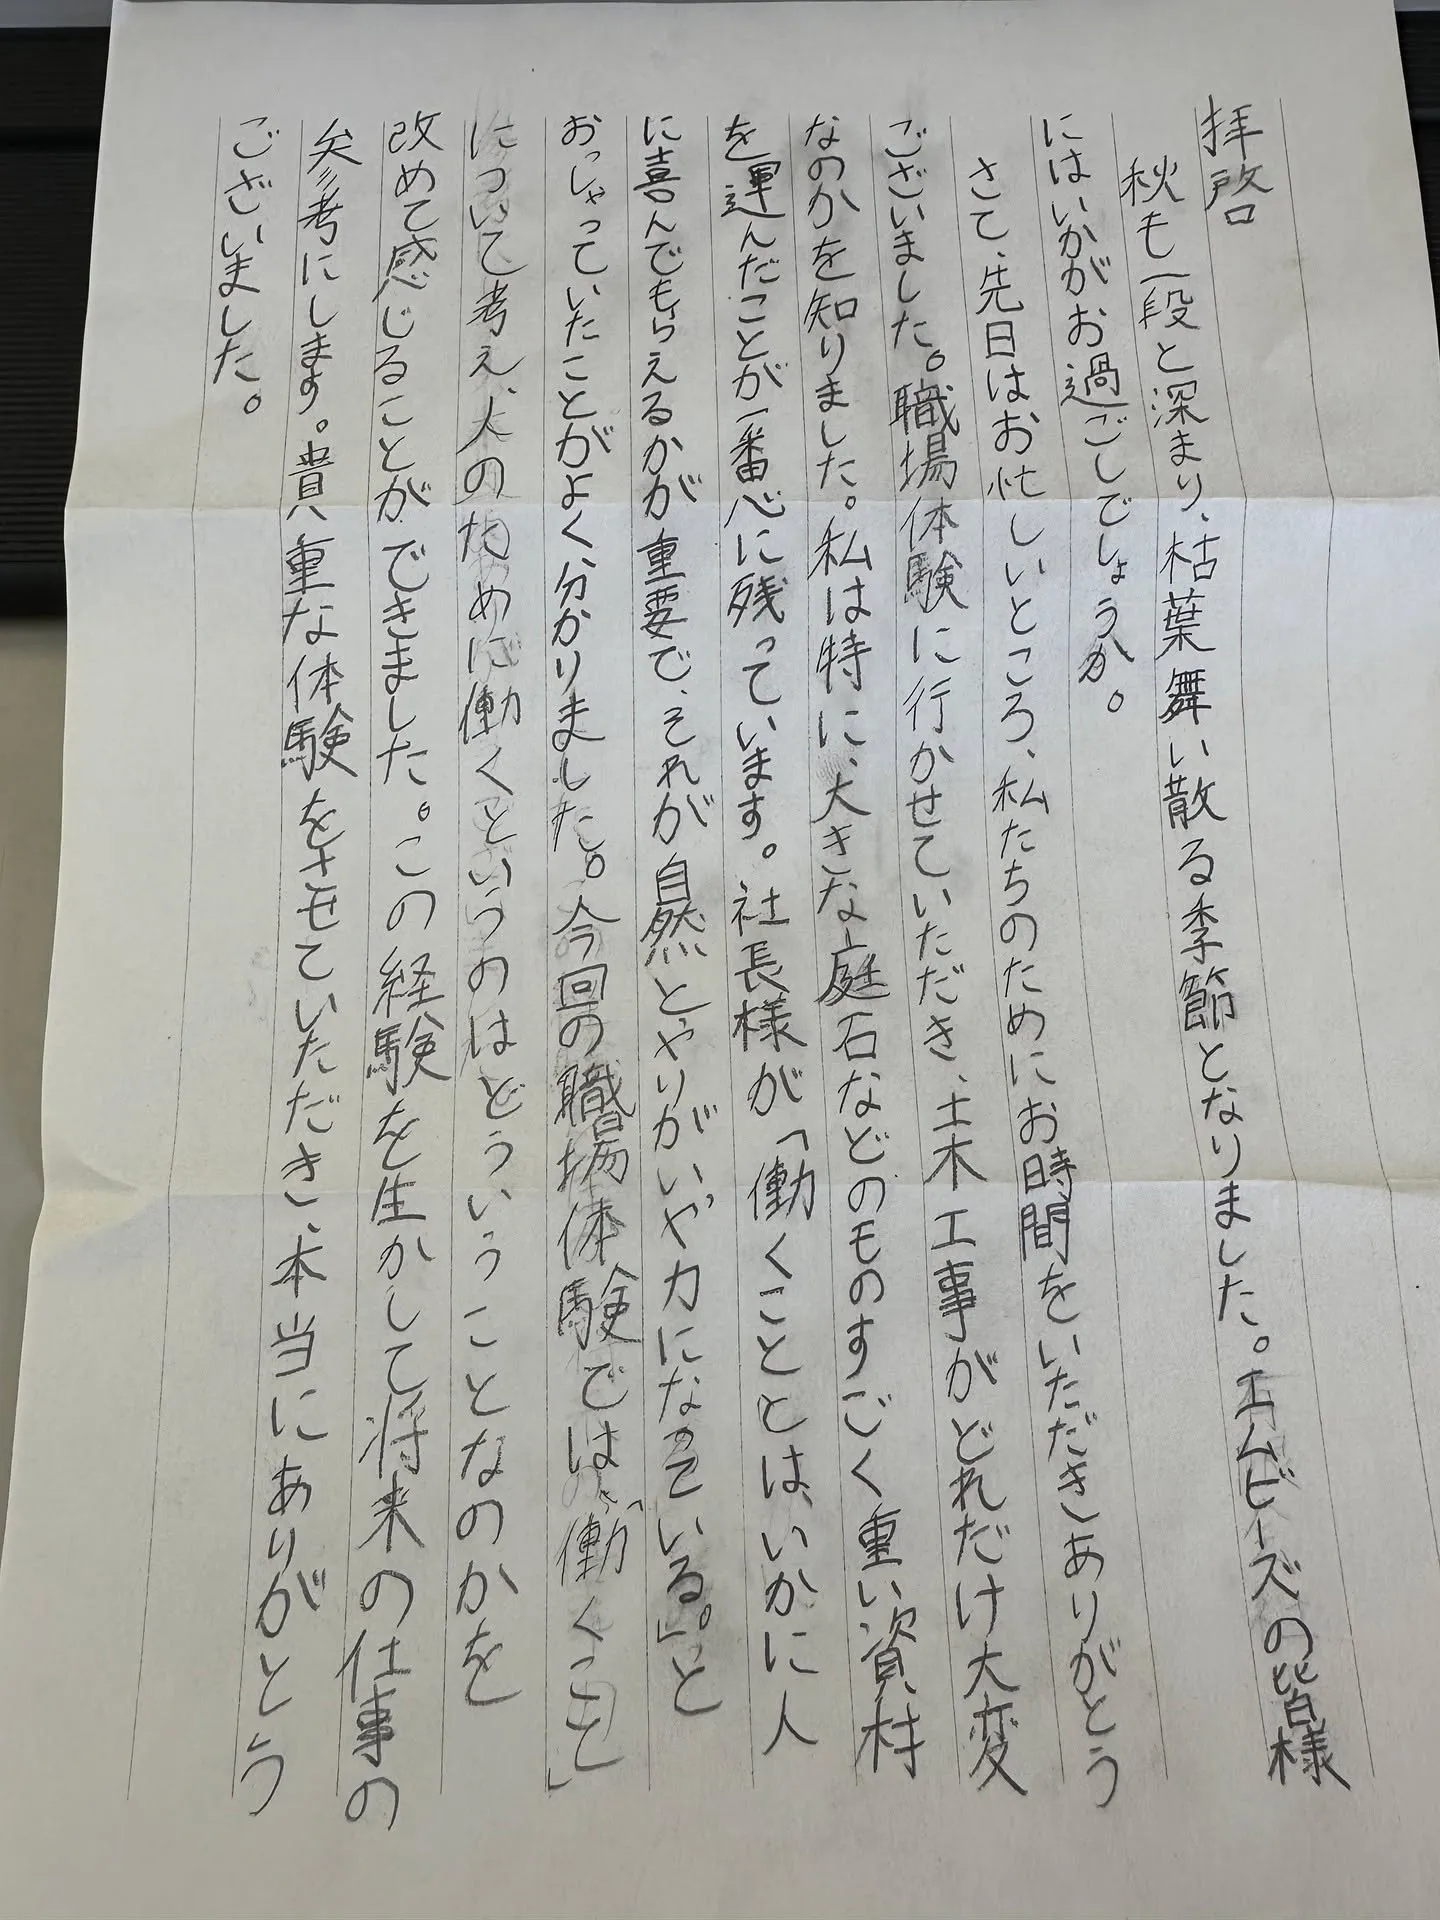 拝啓
秋も一段と深まり、枯葉舞い散る季節となりました。エムビーズの皆様
にはいかがお過ごしでしょうか。
さて、先日はお忙しいところ、私たちのためにお時間をいただきありがとう
ございました。職場体験に行かせていただき、土木工事がどれだけ大変
なのかを知りました。私は特に、大きな庭石などのものすごく重い資材
を運んだことが一番心に残っています。社長様が「働くこととは、いかに人
に喜んでもらえるかが重要で、それが自然とやりがいや力になっている。」と
おっしゃっていたことがよく分かりました。今回の職場体験では、「働くこと」
について考え、人のために働くというのはどういうことなのかを
改めて感じることができました。この経験を生かして将来の仕事の
参考にします。貴重な体験をさせていただき、本当にありがとう
ございました。